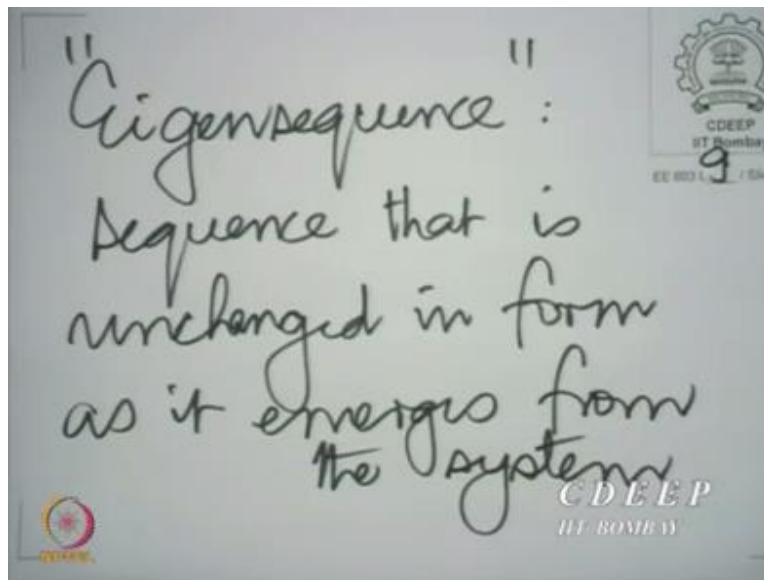 "Eigensequence":
sequence that is
unchanged in form
as it emerges from
the system
CDEEP
IIT Bombay
9
EE 603 L
CDEEP
IIT BOMBAY
NPTEL